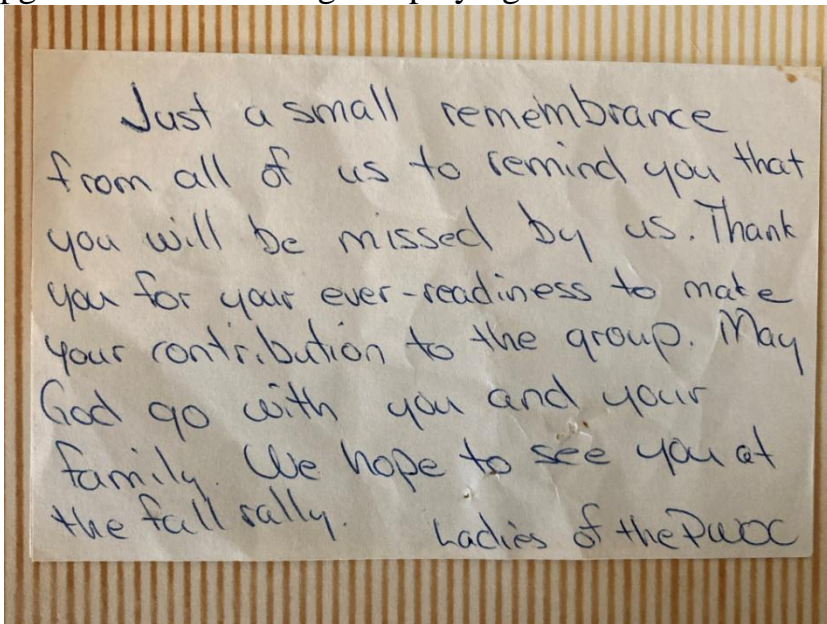 Just a small remembrance
from all of us to remind you that
you will be missed by us. Thank
you for your ever-readiness to make
your contribution to the group. May
God go with you and your
family. We hope to see you at
the fall rally. Ladies of the PWOC